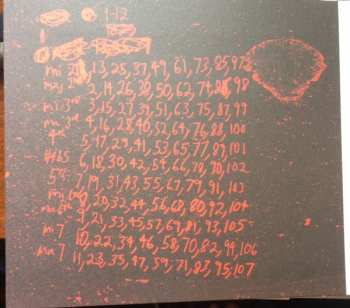 1-12
mi 2nd, 13, 25, 37, 49, 61, 73, 85, 97
maj 2, 14, 26, 38, 50, 62, 74, 86, 98
mi 3rd 3, 15, 27, 39, 51, 63, 75, 87, 99
ma 3rd 4, 16, 28, 40, 52, 64, 76, 88, 100
4th 5, 17, 29, 41, 53, 65, 77, 89, 101
#4b5 6, 18, 30, 42, 54, 66, 78, 90, 102
5th 7, 19, 31, 43, 55, 67, 79, 91, 103
8, 20, 32, 44, 56, 68, 80, 92, 104
9, 21, 33, 45, 57, 69, 81, 93, 105
m 7 10, 22, 34, 46, 58, 70, 82, 94, 106
ma 7 11, 23, 35, 47, 59, 71, 83, 95, 107